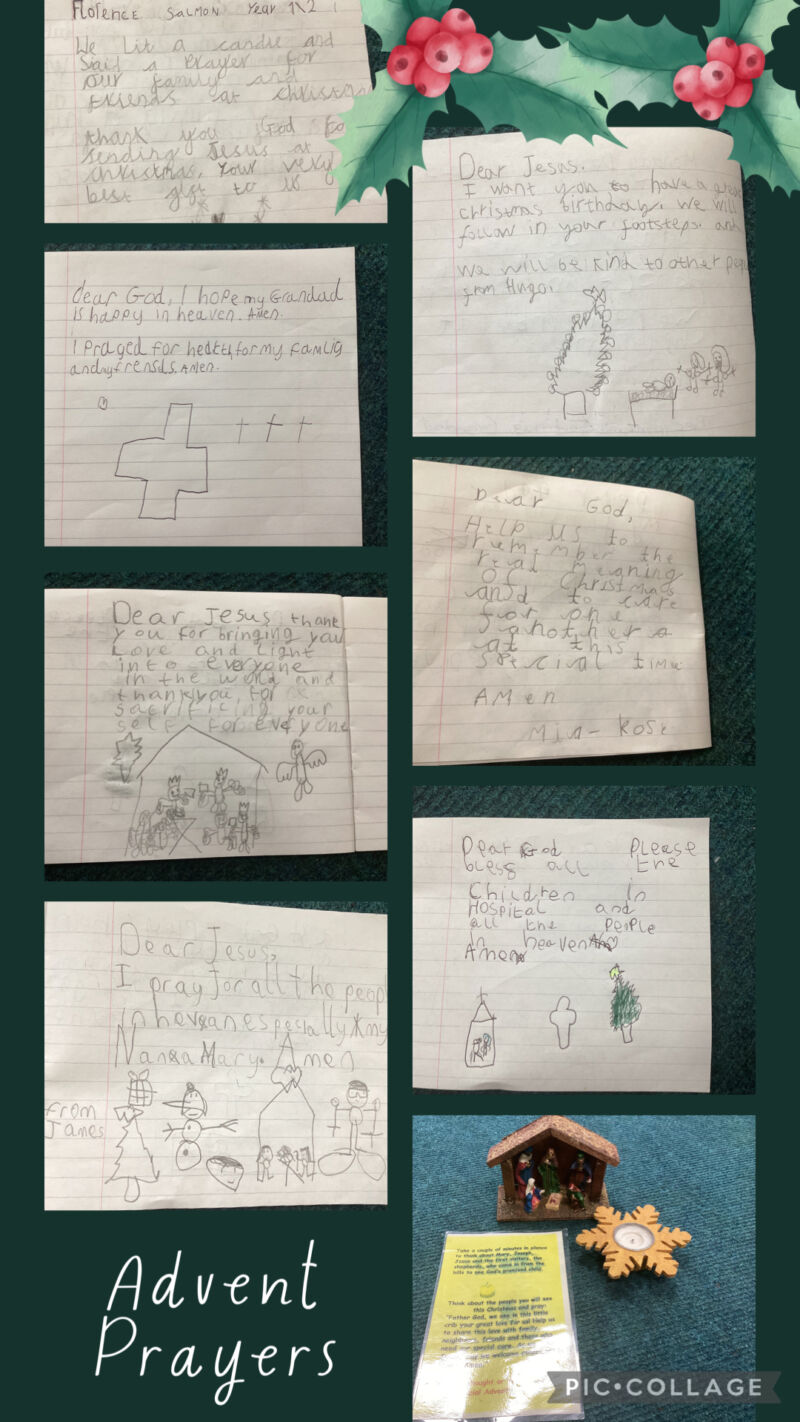 Florence Salmon Year 1\2
We Lit a candle and
Said a Prayer for
our family and
friends at christm
thank you God fo
sending Jesus at
christmas, Your very
best gift to us
dear God, I hope my Grandad
is happy in heaven. Amen.
I Prayed for for my family
Amen.
Dear Jesus thank
you for bringing you
Love and Light
into everyone
in the world and
thankyou for
sacrificing your
self for everyone
Dear Jesus,
I pray for all the peop
in especially my
Mary. Amen
from
James
Dear Jesus.
I want you to have a
christmas birthday. we will
follow in your footsteps. and
we will be kind to other
from Hugo.
Dear God,
Help us to
rememmber the
real meaning
of Christmas
and to care
for one
another
at this
time
AMen
Mia-Rose
Dear God Please
bless all the
Children in
Hospital and
all the People
in heaven
Amen
Take a couple of minutes in silence
to think about Mary, Joseph,
Jesus and the first visitors, the
shepherds, who came in from the
hills to see God's promised child.
Think about the people you will see
this Christmas and pray:
"Father God, we see in this little
crib your great love for us! Help us
to share this love with family,
neighbours, friends and those who
need our special care.
we welcome
Advent
Advent
Prayers
PIC•COLLAGE